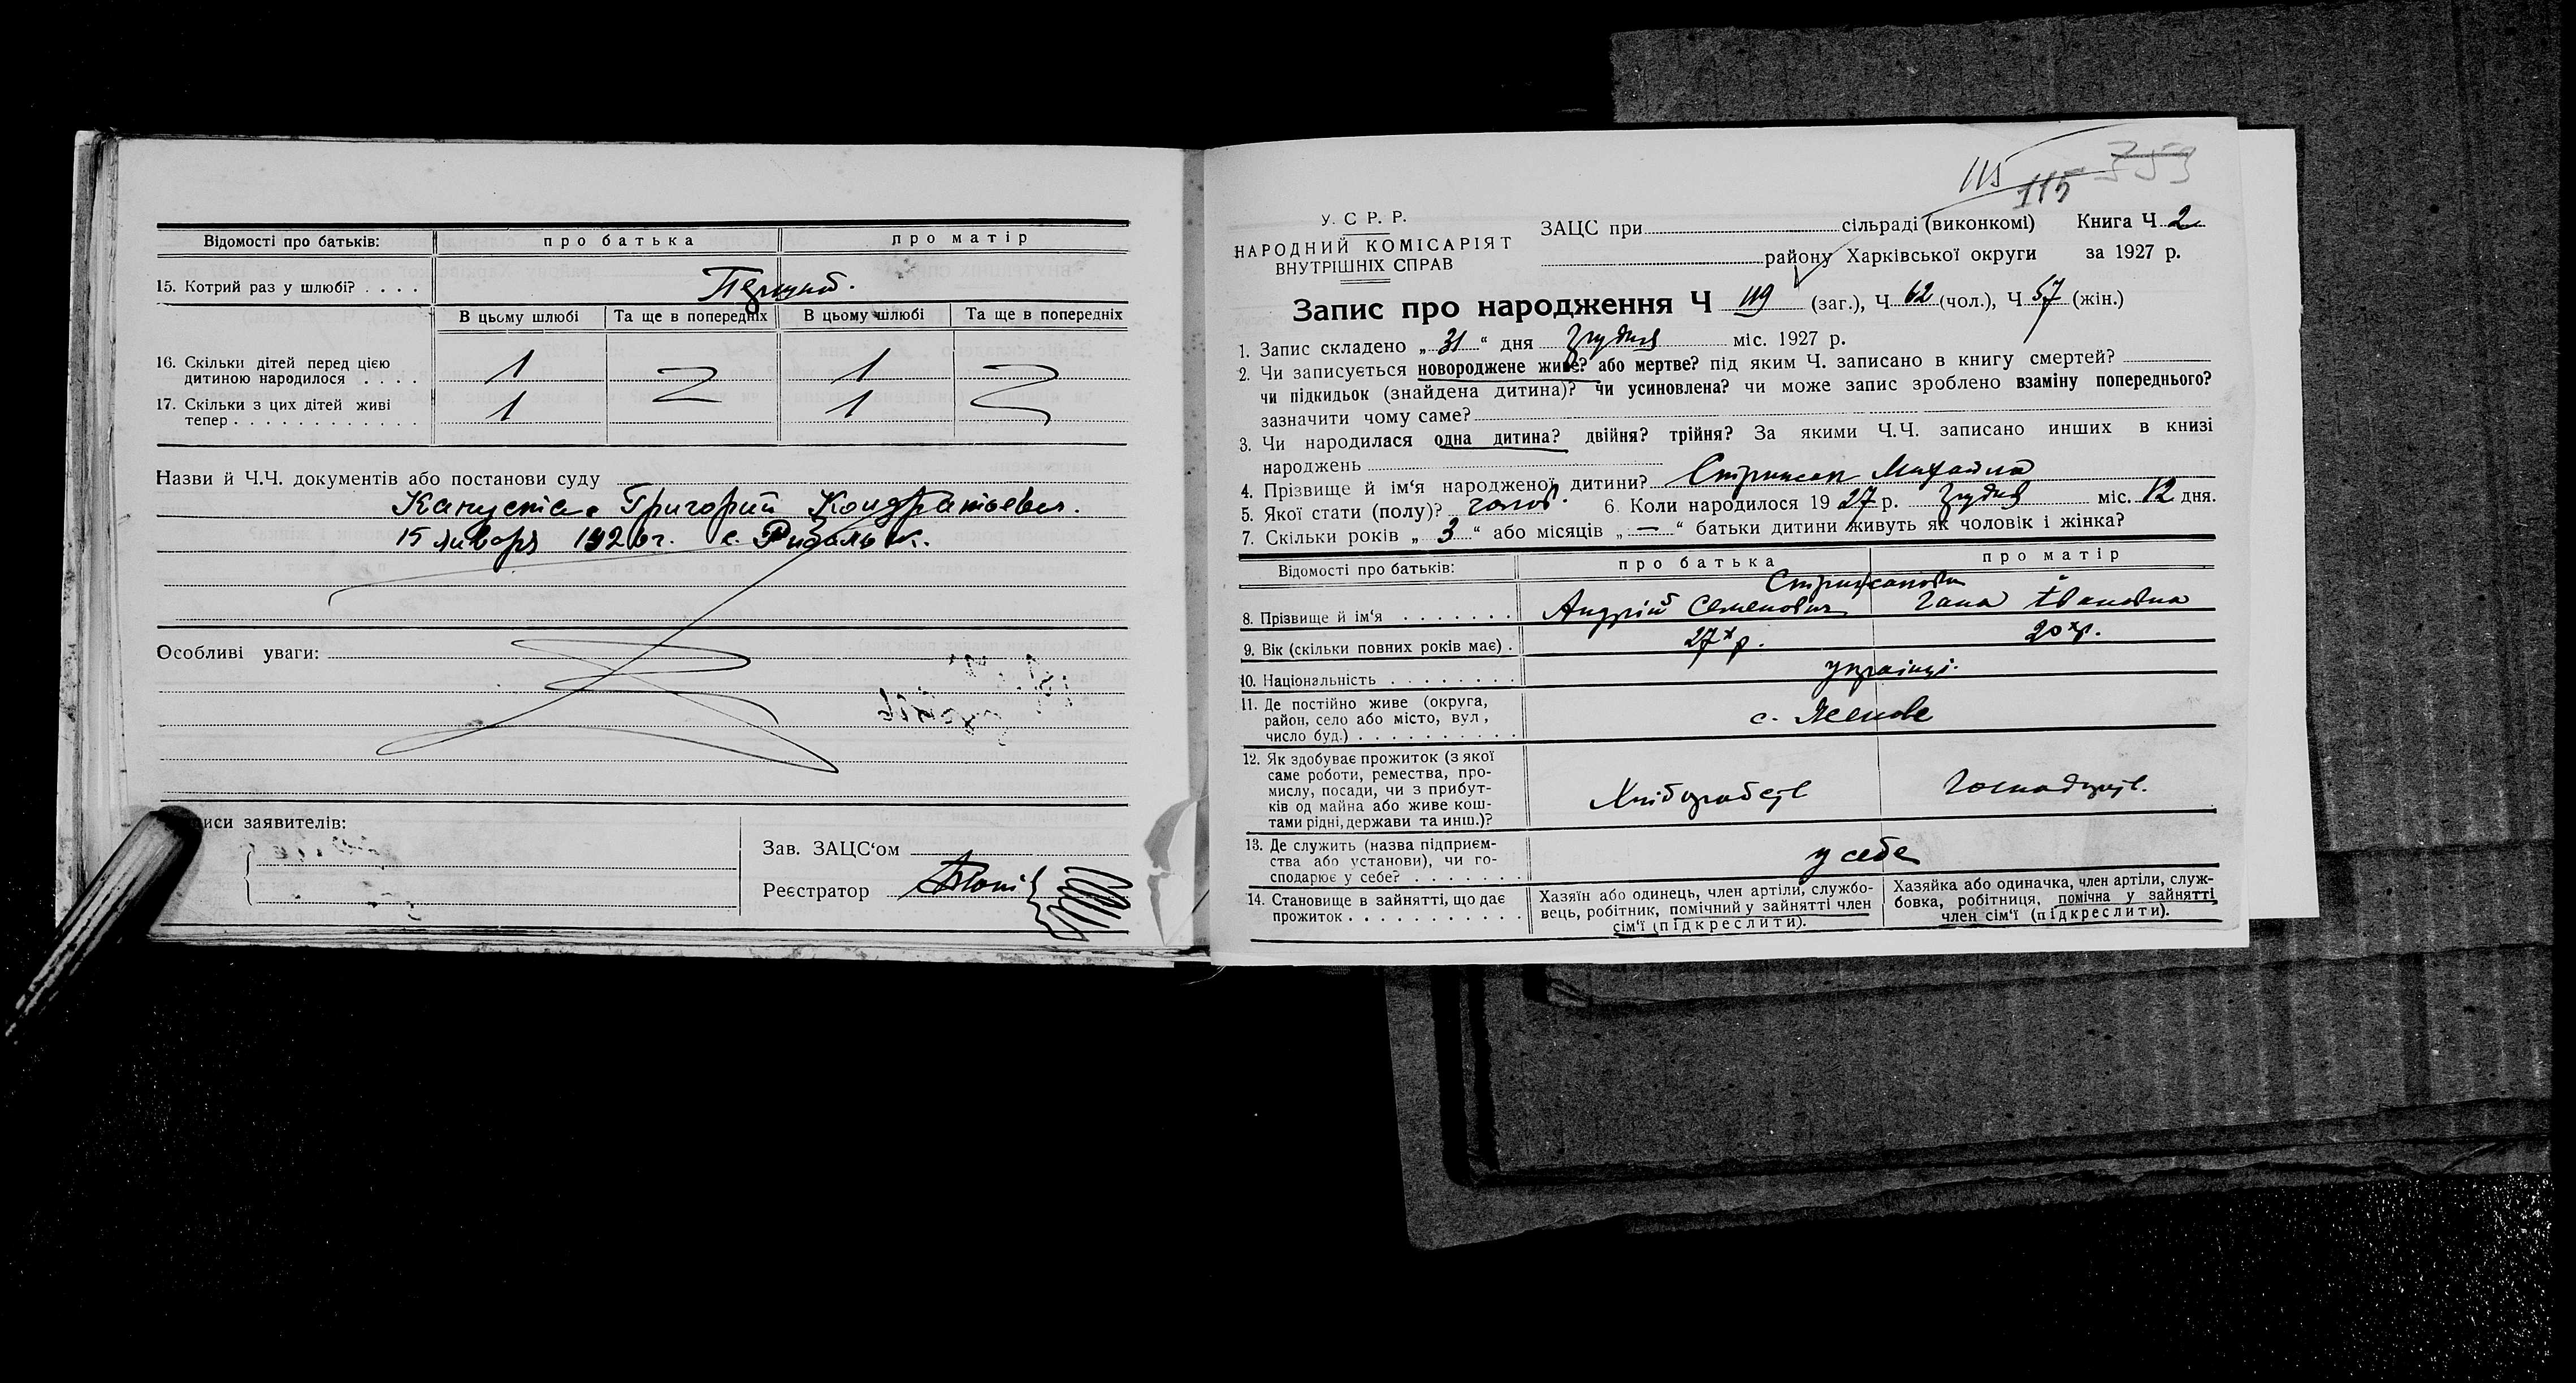 Відомості про батьків: про батька про матір
15. Котрий раз у шлюбі? . . . . Перший.
В цьому шлюбі Та ще в попередніх В цьому шлюбі Та ще в попередніх
16. Скільки дітей перед цією
дитиною народилося . . . . 1 1
17. Скільки з цих дітей живі
тепер . . . . . . . . . . . . 1 1
Назви й Ч.Ч. документів або постанови суду
Капуста Григорий Кондратьевич.
15 января 1926 г. с.
Особливі уваги:
иси заявителів:
Зав. ЗАЦС‘ом
Реєстратор
115 115 353
У. С Р. Р.
НАРОДНИЙ КОМІСАРІЯТ
ВНУТРІШНІХ СПРАВ
ЗАЦС при сільраді (виконкомі) Книга Ч. 2
району Харківської округи за 1927 р.
Запис про народження Ч 119 (заг.), Ч 62 (чол.), Ч 57 (жін.)
1. Запис складено „ 31 “ дня Грудня міс. 1927 р.
2. Чи записується новороджене живе? або мертве? під яким Ч. записано в книгу смертей?
чи підкидьок (знайдена дитина)? чи усиновлена? чи може запис зроблено взаміну попереднього?
зазначити чому саме?
3. Чи народилася одна дитина? двійня? трійня? За якими Ч.Ч. записано инших в книзі
народжень
4. Прізвище й ім‘я народженої дитини? Стрижак Михайло
5. Якої стати (полу)? чолов. 6. Коли народилося 19 27 р. Грудня міс. 12 дня.
7. Скільки років „ 3 “ або місяців „ — “ батьки дитини живуть як чоловік і жінка?
Відомості про батьків: про батька про матір
8. Прізвище й ім‘я . . . . . . . Андрій Семенович Гана Івановна
9. Вік (скільки повних років має) . 27 х р. 20 х р.
10. Національність . . . . . . . . українці.
11. Де постійно живе (округа,
район, село або місто, вул,
число буд.) . . . . . . . . . . с. Ясенове
12. Як здобуває прожиток (з якої
саме роботи, ремества, про-
мислу, посади, чи з прибут-
ків од майна або живе кош-
тами рідні, держави та инш.)? Хліборобст Господарст.
13. Де служить (назва підприєм-
ства або установи), чи го-
сподарює у себе? . . . . . . . у себе
14. Становище в зайнятті, що дає
прожиток . . . . . . . . . . . .
Хазяїн або одинець, член артілі, службо-
вець, робітник, помічний у зайнятті член
сім‘ї (підкреслити).
Хазяйка або одиначка, член артілі, служ-
бовка, робітниця, помічна у зайнятті
член сім‘ї (підкреслити).